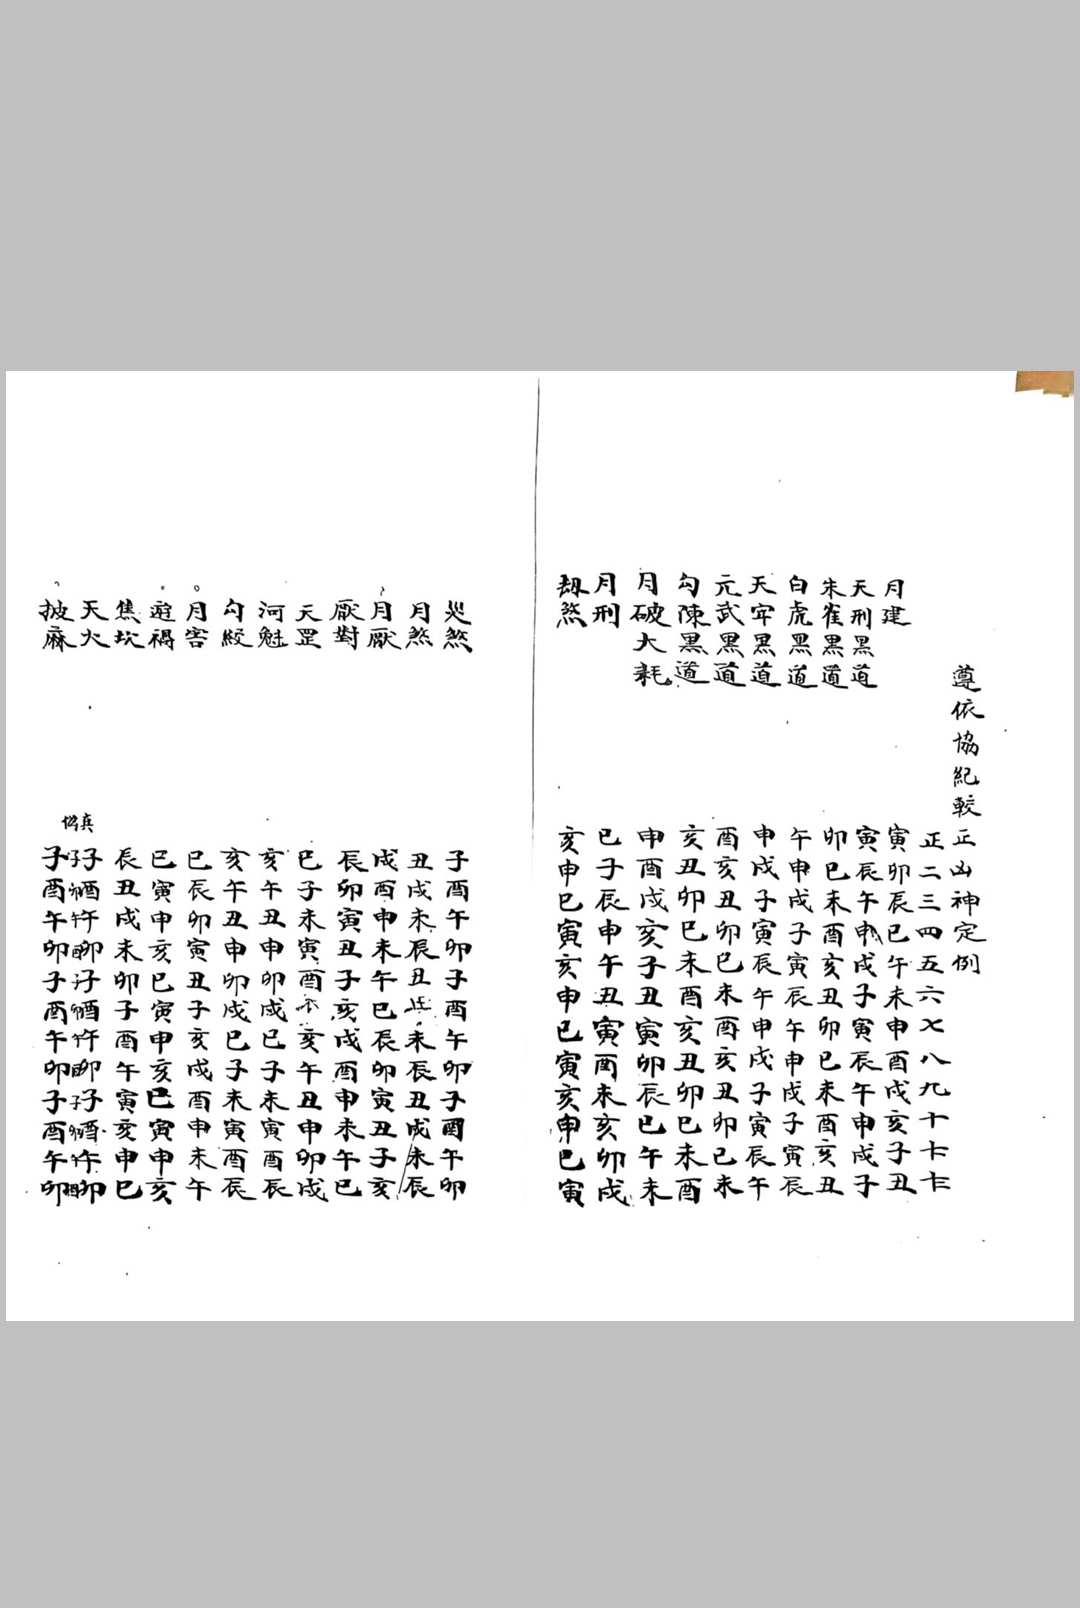 遵依協紀較正凶神定例
正二三四五六七八九十十一十二
月建 寅卯辰巳午未申酉戌亥子丑
天刑黑道 寅辰午申戌子寅辰午申戌子
朱雀黑道 卯巳未酉亥丑卯巳未酉亥丑
白虎黑道 午申戌子寅辰午申戌子寅辰
天牢黑道 申戌子寅辰午申戌子寅辰午
元武黑道 酉亥丑卯巳未酉亥丑卯巳未
勾陳黑道 亥丑卯巳未酉亥丑卯巳未酉
月破大耗 申酉戌亥子丑寅卯辰巳午未
月刑 巳子辰申午丑寅酉未亥卯戌
刼煞 亥申巳寅亥申巳寅亥申巳寅
災煞 子酉午卯子酉午卯子酉午卯
月煞 丑戌未辰丑戌未辰丑戌未辰
月厭 戌酉申未午巳辰卯寅丑子亥
厭對 辰卯寅丑子亥戌酉申未午巳
天罡 巳子未寅酉亥午丑申卯戌
河魁 亥午丑申卯戌巳子未寅酉辰
勾絞 亥午丑申卯戌巳子未寅酉辰
月害 巳辰卯寅丑子亥戌酉申未午
遊禍 巳寅申亥巳寅申亥巳寅申亥
焦坎 辰丑戌未卯子酉午寅亥申巳
天火 真 子酉午卯子酉午卯子酉午卯
披麻 子酉午卯子酉午卯子酉午卯